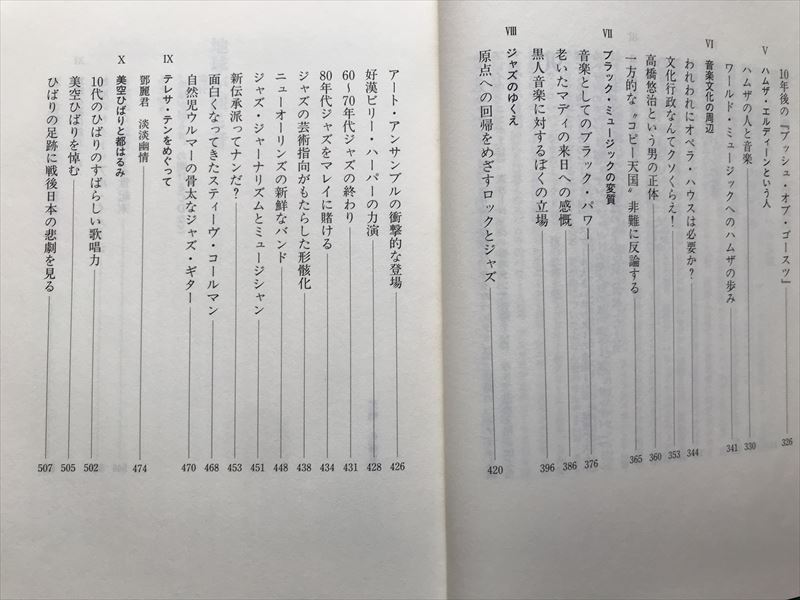 10年後の『アッシュ・オブ・ゴースツ』 326
V ハムザ・エルディーンという人
ハムザの人と音楽 330
ワールド・ミュージックへのハムザの歩み 341
VI 音楽文化の周辺
われわれにオペラ・ハウスは必要か? 344
文化行政なんてクソくらえ! 353
高橋悠治という男の正体 360
一方的な〝コピー天国〟非難に反論する 365
VII ブラック・ミュージックの変質
音楽としてのブラック・パワー 376
老いたマディの来日への感慨 386
黒人音楽に対するぼくの立場 396
VIII ジャズのゆくえ
原点への回帰をめざすロックとジャズ 420
アート・アンサンブルの衝撃的な登場 426
好漢ビリー・ハーパーの力演 428
60〜70年代ジャズの終わり 431
80年代ジャズをマレイに賭ける 434
ジャズの芸術指向がもたらした形骸化 438
ニューオーリンズの新鮮なバンド 448
ジャズ・ジャーナリズムとミュージシャン 451
新伝承派ってナンだ? 453
面白くなってきたスティーヴ・コールマン 468
自然児ウルマーの骨太なジャズ・ギター 470
IX テレサ・テンをめぐって
鄧麗君 淡淡幽情 474
X 美空ひばりと都はるみ
10代のひばりのすばらしい歌唱力 502
美空ひばりを悼む 505
ひばりの足跡に戦後日本の悲劇を見る 507